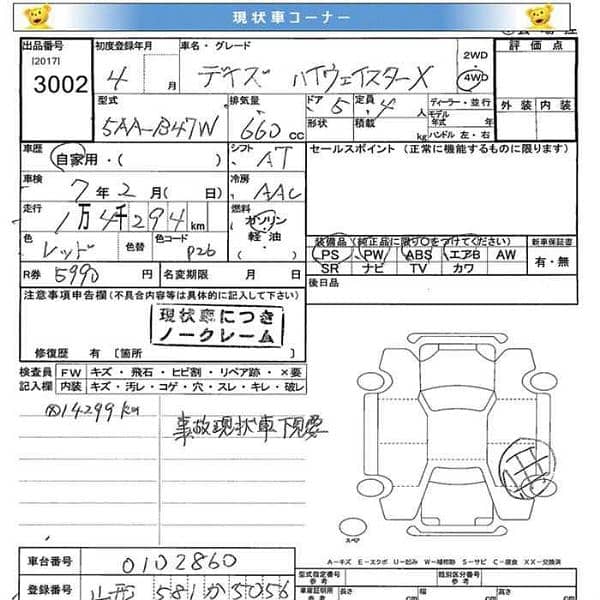 現状車コーナー
出品番号 初度登録年月 車名・グレード 2WD 評価点
[2017] 3002 4 月 デイズ ハイウェイスターX 4WD
型式 排気量 ドア 定員 ディーラー・並行 外装 内装
5AA-B47W 660 CC 5 4 人 モデル年式 年
形状 積載 kg ハンドル 左・右
車歴 シフト セールスポイント (正常に機能するものに限ります)
自家用・( ) AT
車検 冷房
7年2月( 日) AAC
走行 燃料
1万4千294km ガソリン 軽油・( )
色 色替 色コード 装備品(純正品に限り○をつけてください) 新車保証書
レッド PS PW ABS エアB AW 有・無
SR ナビ TV カワ
R券 5990 円 名変期限 月 日 後日品
注意事項申告欄(不具合内容等は具体的に記入して下さい)
現状車につき
ノークレーム
修復歴 有 [箇所
検査員 FW キズ・飛石・ヒビ割・リペア跡・×要
記入欄 内装 キズ・汚レ・コゲ・穴・スレ・キレ・破レ
14299km
事故現状車下見要
スペア
A=キズ E=エクボ U=凹み W=補修跡 S=サビ C=腐食 XX=交換済
車台番号 0102860
型式指定番号 参考 類別区分番号 参考
登録番号 山形 581 か 5056
車庫証明 参考 長さ 幅 高さ